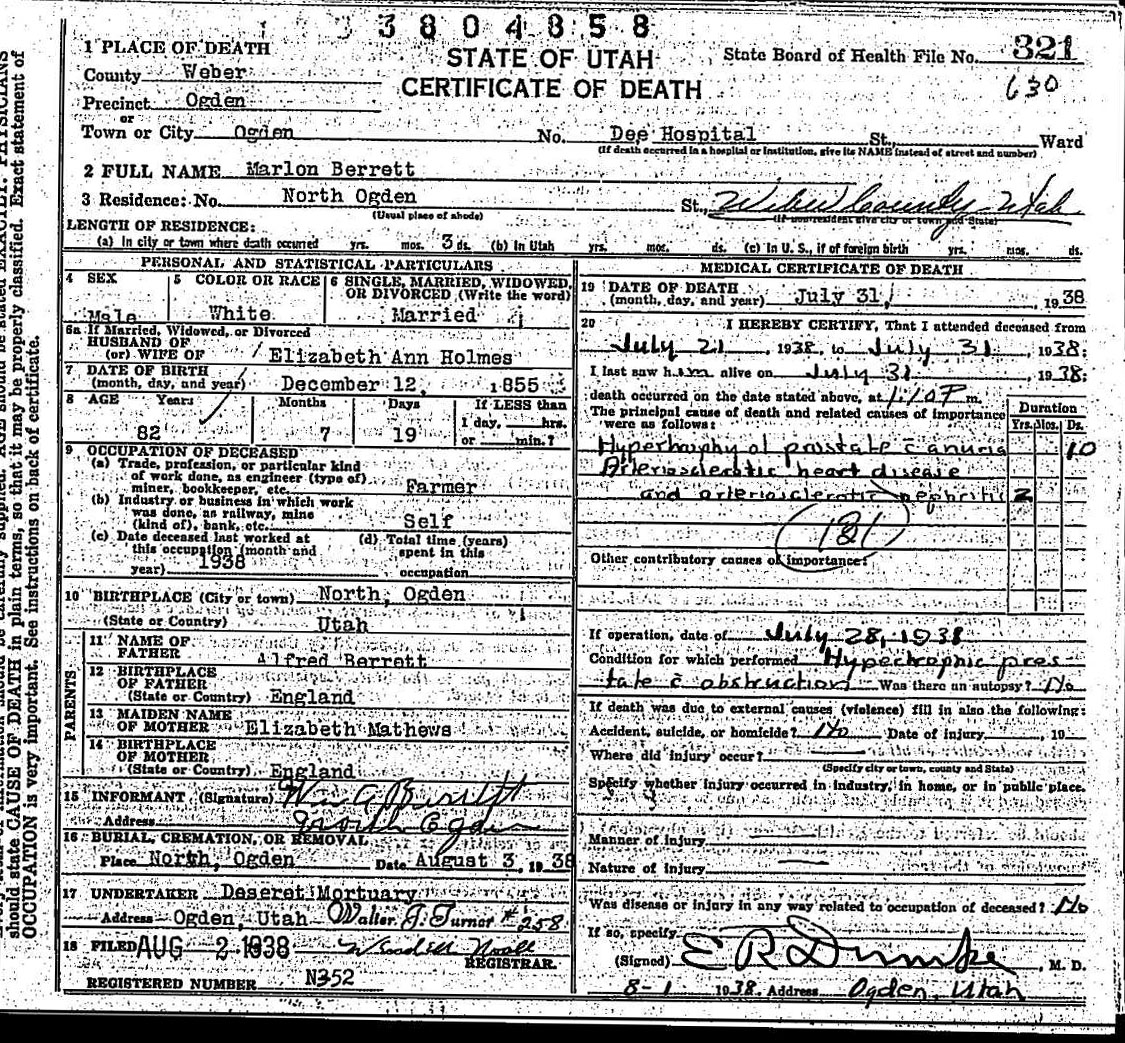 3804858
1 PLACE OF DEATH
STATE OF UTAH
State Board of Health File No. 321
County Weber
CERTIFICATE OF DEATH
630
Precinct Ogden
or
Town or City Ogden No. Dee Hospital St., Ward
(If death occurred in a hospital or institution, give its NAME instead of street and number)
2 FULL NAME Marlon Berrett
3 Residence: No. North Ogden St., Weber County Utah
(Usual place of abode) (If non-resident give city or town and State)
LENGTH OF RESIDENCE:
(a) In city or town where death occurred yrs. mos. 3 ds. (b) In Utah yrs. mos. ds. (c) In U. S., if of foreign birth yrs. mos. ds.
PERSONAL AND STATISTICAL PARTICULARS
4 SEX 5 COLOR OR RACE 6 SINGLE, MARRIED, WIDOWED, OR DIVORCED (Write the word)
Male White Married
6a If Married, Widowed, or Divorced
HUSBAND OF
(or) WIFE OF Elizabeth Ann Holmes
7 DATE OF BIRTH
(month, day, and year) December 12, 1855
8 AGE Years Months Days If LESS than
1 day, hrs.
82 7 19 or min.?
9 OCCUPATION OF DECEASED
(a) Trade, profession, or particular kind
of work done, as engineer (type of)
miner, bookkeeper, etc. Farmer
(b) Industry or business in which work
was done, as railway, mine
(kind of), bank, etc. Self
(c) Date deceased last worked at (d) Total time (years)
this occupation (month and spent in this
year) 1938 occupation
10 BIRTHPLACE (City or town) North, Ogden
(State or Country) Utah
PARENTS
11 NAME OF
FATHER Alfred Berrett
12 BIRTHPLACE
OF FATHER
(State or Country) England
13 MAIDEN NAME
OF MOTHER Elizabeth Mathews
14 BIRTHPLACE
OF MOTHER
(State or Country) England
15 INFORMANT (Signature) Wm G Berrett
Address North Ogden
16 BURIAL, CREMATION, OR REMOVAL
Place North, Ogden Date August 3, 1938
17 UNDERTAKER Deseret Mortuary
Address Ogden, Utah Walter J. Turner #258
18 FILED AUG 2 1938
REGISTRAR.
REGISTERED NUMBER N352
MEDICAL CERTIFICATE OF DEATH
19 DATE OF DEATH
(month, day, and year) July 31, 1938
20 I HEREBY CERTIFY, That I attended deceased from
July 21, 1938, to July 31, 1938;
I last saw him alive on July 31, 1938;
death occurred on the date stated above, at P m.
The principal cause of death and related causes of importance Duration
were as follows: Yrs. Mos. Ds.
Hypertrophy of prostate c̄ anuria 10
Arteriosclerotic heart disease
and arteriosclerotic nephritis 2
Other contributory causes of importance:
If operation, date of July 28, 1938
Condition for which performed Hypertrophic pros-
tate c̄ obstruction Was there an autopsy? No
If death was due to external causes (violence) fill in also the following:
Accident, suicide, or homicide? No Date of injury , 19
Where did injury occur?
(Specify city or town, county and State)
Specify whether injury occurred in industry, in home, or in public place.
Manner of injury
Nature of injury
Was disease or injury in any way related to occupation of deceased? No
If so, specify
(Signed) E R Dumke, M. D.
8-1 1938. Address Ogden, Utah
should state CAUSE OF DEATH in plain terms, so that it may be properly classified. Exact statement of
OCCUPATION is very important. See instructions on back of certificate.